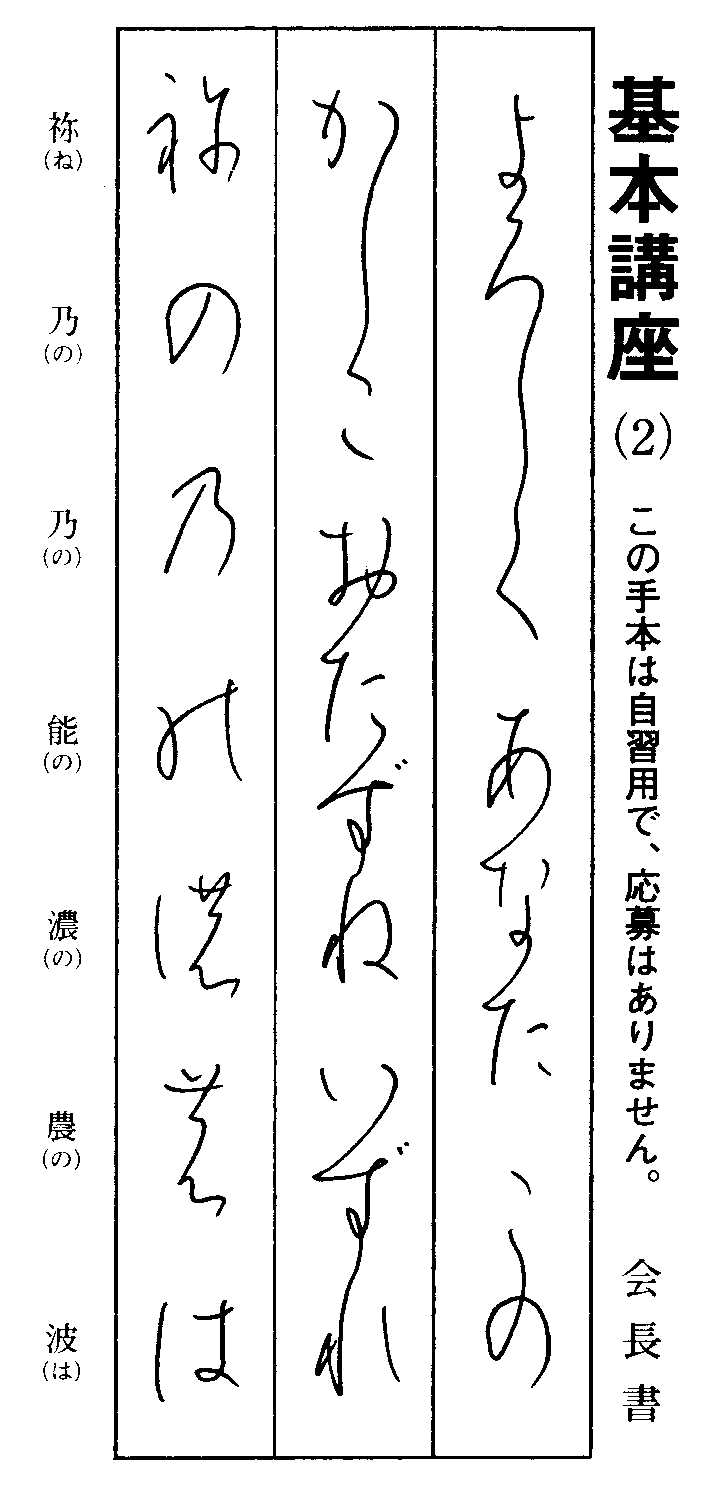 基本講座(2) この手本は自習用で、応募はありません。 会長書
よろしく あなた この
かしこ おたずね いずれ
祢 の 乃 能 濃 農 は
祢(ね) 乃(の) 乃(の) 能(の) 濃(の) 農(の) 波(は)